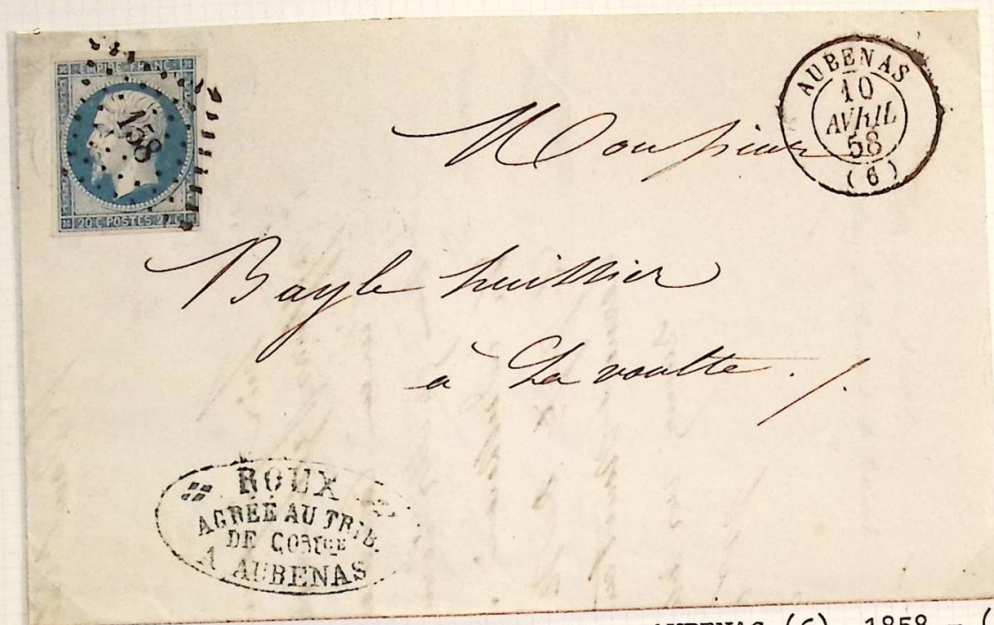 EMPIRE FRANC
158
20 C POSTES 20 C
AUBENAS
10
AVRIL
58
(6)
Monsieur
Bayle huissier
à La voulte.
ROUX
AGRÉÉ AU TRIB.
DE COM͏ce
A AUBENAS
AUBENAS (6) 1858 - (